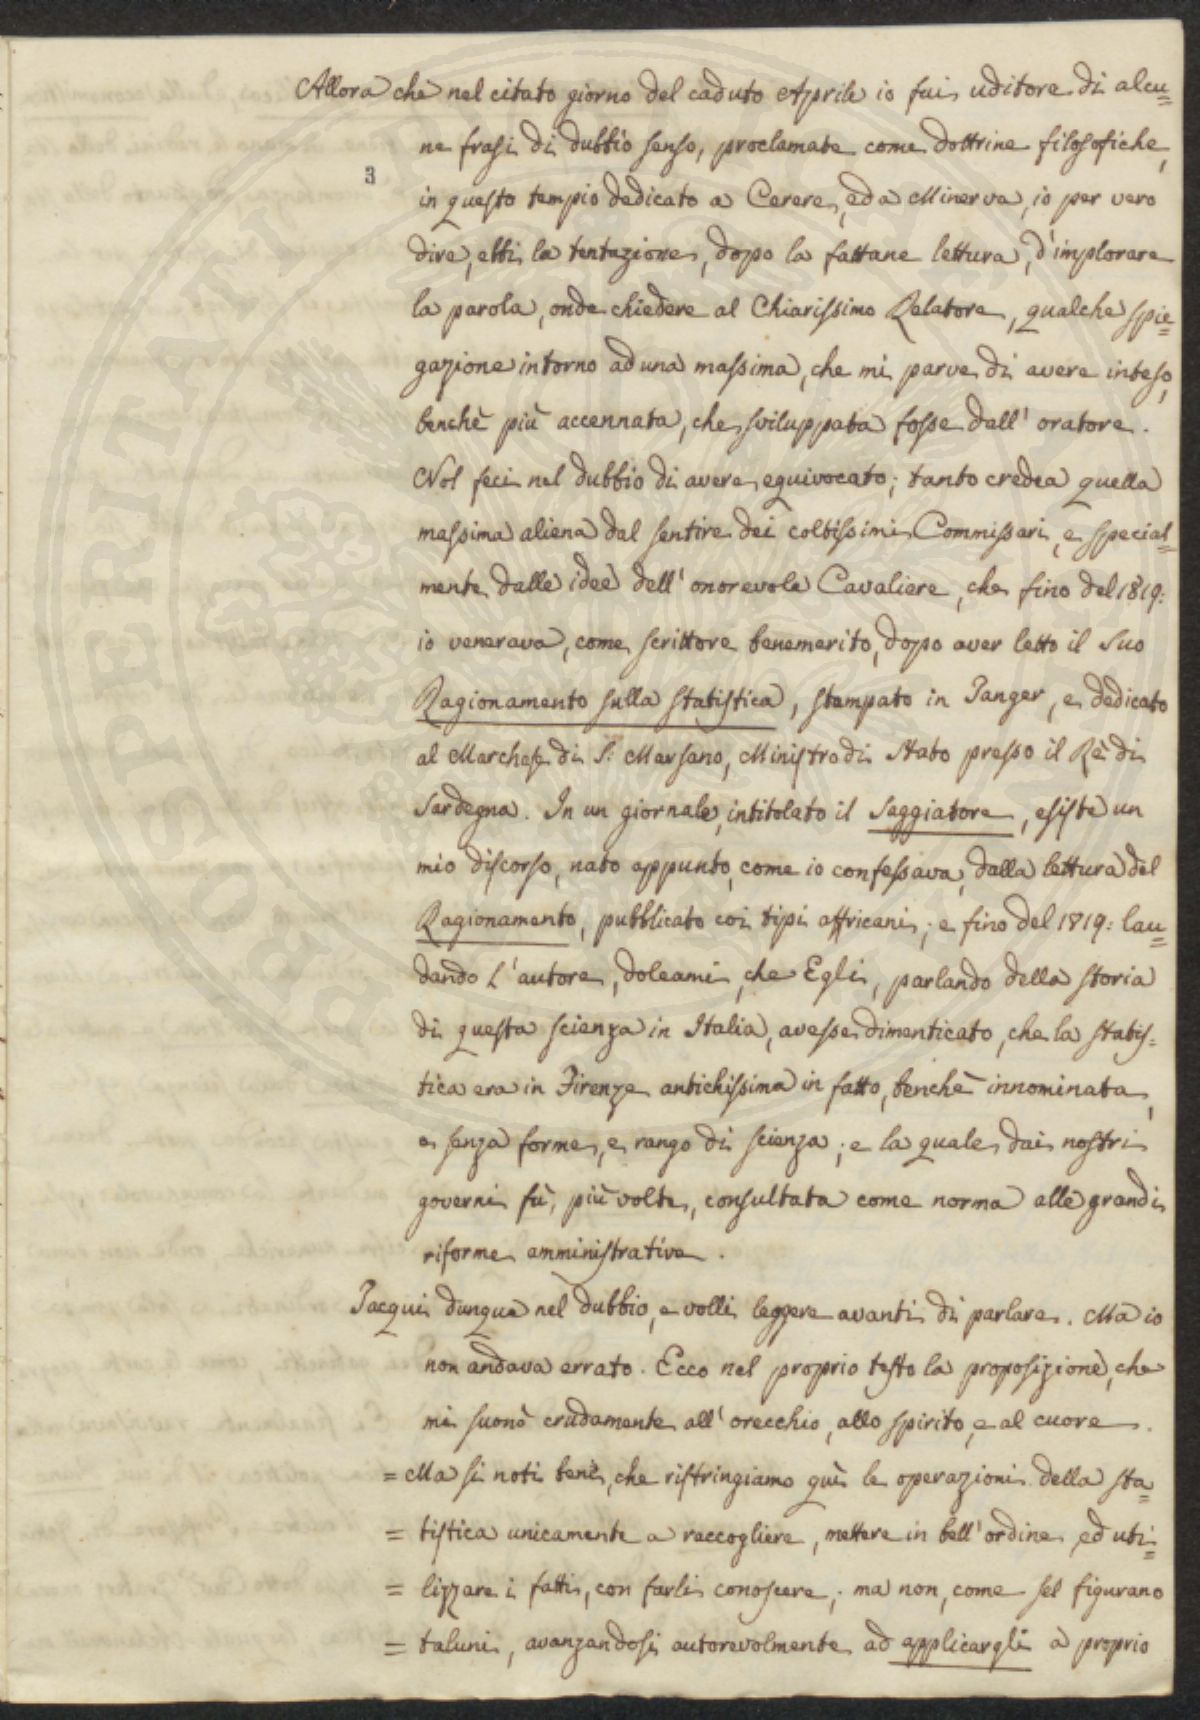 Allora che nel citato giorno del caduto Aprile io fui uditore di alcu=
ne frasi di dubbio senso, proclamate come dottrine filosofiche,
3
in questo tempio dedicato a Cerere, ed a Minerva, io per vero
dire, ebbi la tentazione, dopo la fattane lettura, d'implorare
la parola, onde chiedere al Chiarissimo Relatore, qualche spie=
gazione intorno ad una massima, che mi parve di avere inteso,
benchè più accennata, che sviluppata fosse dall' oratore.
Nol feci nel dubbio di avere equivocato; tanto credea quella
massima aliena dal sentire dei coltissimi Commissari, e special=
mente dalle idee dell' onorevole Cavaliere, che fino del 1819:
io venerava, come scrittore benemerito, dopo aver letto il suo
Ragionamento sulla statistica, stampato in Tanger, e dedicato
al Marchese di S. Marsano, Ministro di Stato presso il Rè di
Sardegna. In un giornale, intitolato il Saggiatore, esiste un
mio discorso, nato appunto, come io confessava, dalla lettura del
Ragionamento, pubblicato coi tipi affricani; e fino del 1819: lau=
dando l'autore, doleami, che Egli, parlando della storia
di questa scienza in Italia, avesse dimenticato, che la statis=
tica era in Firenze antichissima in fatto, benchè innominata,
e senza forme, e rango di scienza; e la quale dai nostri
governi fù, più volte, consultata come norma alle grandi
riforme amministrative.
Tacqui dunque nel dubbio, e volli leggere avanti di parlare. Ma io
non andava errato. Ecco nel proprio testo la proposizione, che
mi suonò crudamente all' orecchio, allo spirito, e al cuore.
= Ma si noti bene, che ristringiamo quì le operazioni della sta=
= tistica unicamente a raccogliere, mettere in bell' ordine, ed uti=
= lizzare i fatti, con farli conoscere; ma non, come sel figurano
= taluni, avanzandosi autorevolmente ad applicargli a proprio